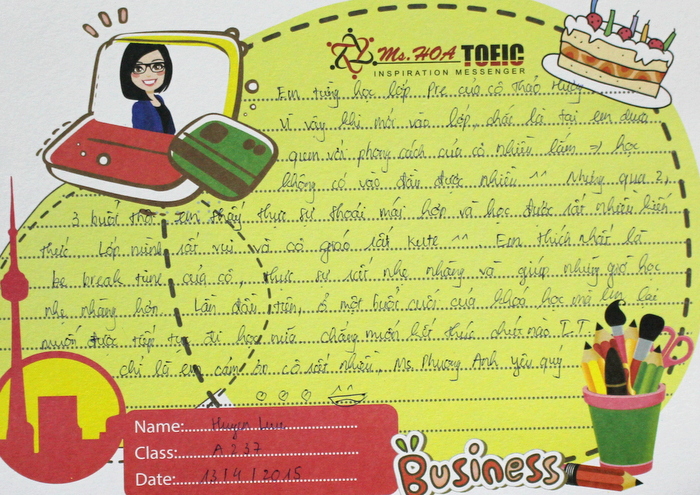 Ms. HOA TOEIC
INSPIRATION MESSENGER
Em từng học lớp Pre của cô Thảo
Vì vậy khi mới vào lớp, chắc là tại em chưa
quen với phong cách của cô nhiều lắm => học
không có vào đầu được nhiều ^^ Nhưng qua 2,
3 buổi thôi em thấy thực sự thoải mái hơn và học được rất nhiều kiến
thức. Lớp mình rất vui và cô giáo rất kute ^^ Em thích nhất là
break time của cô, thực sự rất nhẹ nhàng và giúp những giờ học
nhẹ nhàng hơn. Lần đầu tiên, ở một buổi cuối của khóa học mà em lại
muốn được tiếp tục đi học nữa chẳng muốn kết thúc chút nào T.T
chỉ là em cảm ơn cô rất nhiều, Ms. Phương Anh yêu quý
Name: Huyen Luu
Class: A237
Date: 13/4/2015
Business